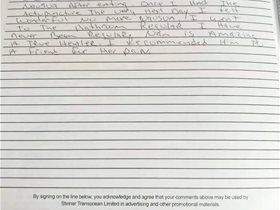 Nausea After eating Once I Had The
Acupuncture The very Next Day I felt
Wonderful No more Nausea I went
To The Bathroom Regular I Have
Never Been Regular. is Amazing
A True Healer I Recommended Him To
A Friend for Her Pain.
By signing on the line below, you acknowledge and agree that your comments above may be used by
Steiner Transocean Limited in advertising and other promotional materials.